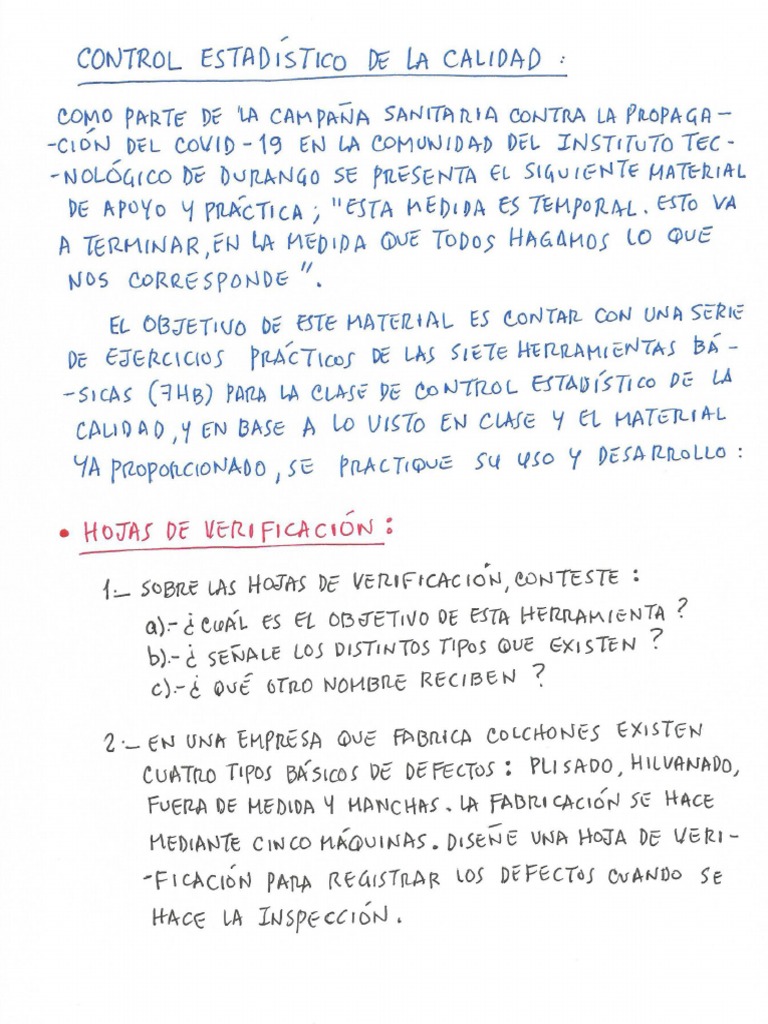 CONTROL ESTADÍSTICO DE LA CALIDAD :
COMO PARTE DE LA CAMPAÑA SANITARIA CONTRA LA PROPAGA-
-CIÓN DEL COVID-19 EN LA COMUNIDAD DEL INSTITUTO TEC-
-NOLÓGICO DE DURANGO SE PRESENTA EL SIGUIENTE MATERIAL
DE APOYO Y PRÁCTICA; "ESTA MEDIDA ES TEMPORAL. ESTO VA
A TERMINAR, EN LA MEDIDA QUE TODOS HAGAMOS LO QUE
NOS CORRESPONDE".
EL OBJETIVO DE ESTE MATERIAL ES CONTAR CON UNA SERIE
DE EJERCICIOS PRÁCTICOS DE LAS SIETE HERRAMIENTAS BÁ-
-SICAS (7HB) PARA LA CLASE DE CONTROL ESTADÍSTICO DE LA
CALIDAD, Y EN BASE A LO VISTO EN CLASE Y EL MATERIAL
YA PROPORCIONADO, SE PRACTIQUE SU USO Y DESARROLLO:
• HOJAS DE VERIFICACIÓN:
1.- SOBRE LAS HOJAS DE VERIFICACIÓN, CONTESTE :
a).- ¿CUÁL ES EL OBJETIVO DE ESTA HERRAMIENTA?
b).- ¿ SEÑALE LOS DISTINTOS TIPOS QUE EXISTEN ?
c).- ¿ QUÉ OTRO NOMBRE RECIBEN ?
2.- EN UNA EMPRESA QUE FABRICA COLCHONES EXISTEN
CUATRO TIPOS BÁSICOS DE DEFECTOS : PLISADO, HILVANADO,
FUERA DE MEDIDA Y MANCHAS. LA FABRICACIÓN SE HACE
MEDIANTE CINCO MÁQUINAS. DISEÑE UNA HOJA DE VERI-
-FICACIÓN PARA REGISTRAR LOS DEFECTOS CUANDO SE
HACE LA INSPECCIÓN.